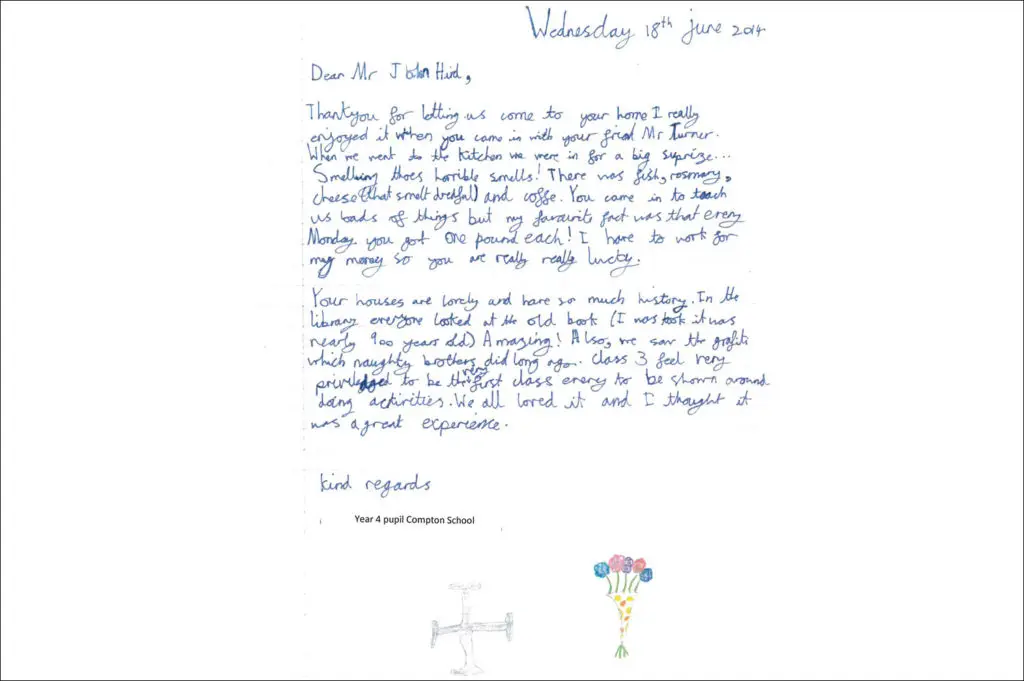 Wednesday 18th june 2014
Dear Mr John Hird,
Thankyou for letting us come to your home I really
enjoyed it when you came in with your friend Mr Turner.
When we went to the kitchen we were in for a big suprize...
Smelling thoes horrible smells! There was fish, rosmary,
cheese (that smelt dredfal) and coffe. You came in to teach
us loads of things but my favourite fact was that every
Monday you got one pound each! I have to work for
my money so you are really really lucky.
Your houses are lovely and have so much history. In the
library everyone looked at the old book (I was it was
nearly 900 years old) Amazing! Also, we saw the grafiti
which naughty brothers did long ago. Class 3 feel very
priviledged to be the very first class every to be shown around
doing activities. We all loved it and I thought it
was a great experience.
kind regards
Year 4 pupil Compton School